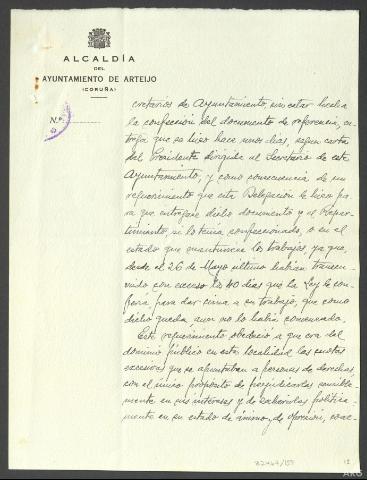 ALCALDÍA
DEL
AYUNTAMIENTO DE ARTEIJO
(CORUÑA)
N.º
cretarios de Ayuntamiento, sin estar hecha
la confección del documento de referencia, en-
trega que se hizo hace unos días, según carta
del Presidente dirigida al Secretario de este
Ayuntamiento, y como consecuencia de un
requerimiento que esta Delegación le hizo pa
ra que entregase dicho documento y el Repar-
timiento, si lo tenía confeccionado, o en el
estado que mantuviera los trabajos, ya que,
desde el 26 de Mayo último habían transcu-
rrido con exceso los 40 días que la Ley le con-
fiera para dar cima a su trabajo, que como
dicho queda, aun no lo había comenzado.
Este requerimiento obedeció a que era del
dominio público en esta localidad las cuotas
excesivas que se apuntaban a personas de derechas,
con el único propósito de perjudicarlas sensible-
mente en sus intereses y de política-
mente en su estado de ánimo, de oprimir, coac-